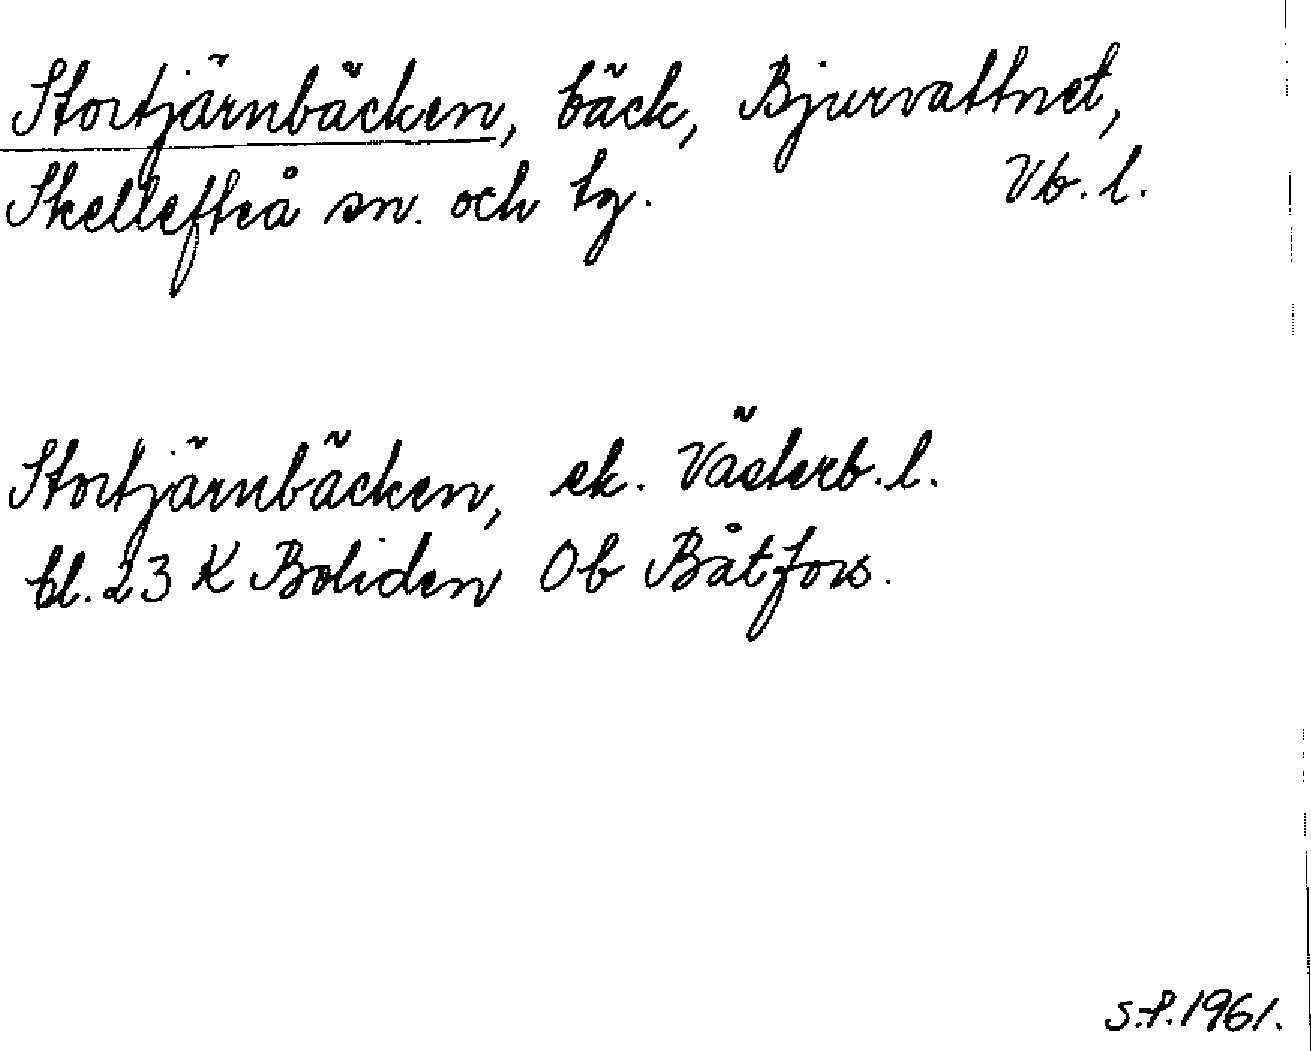 Stortjärnbäcken, bäck, Bjurvattnet,
Skellefteå sn. och tg. Vb. l.
Stortjärnbäcken, ek. Västerb. l.
bl. 23 K Boliden Ob Båtfors.
S.-P. 1961.